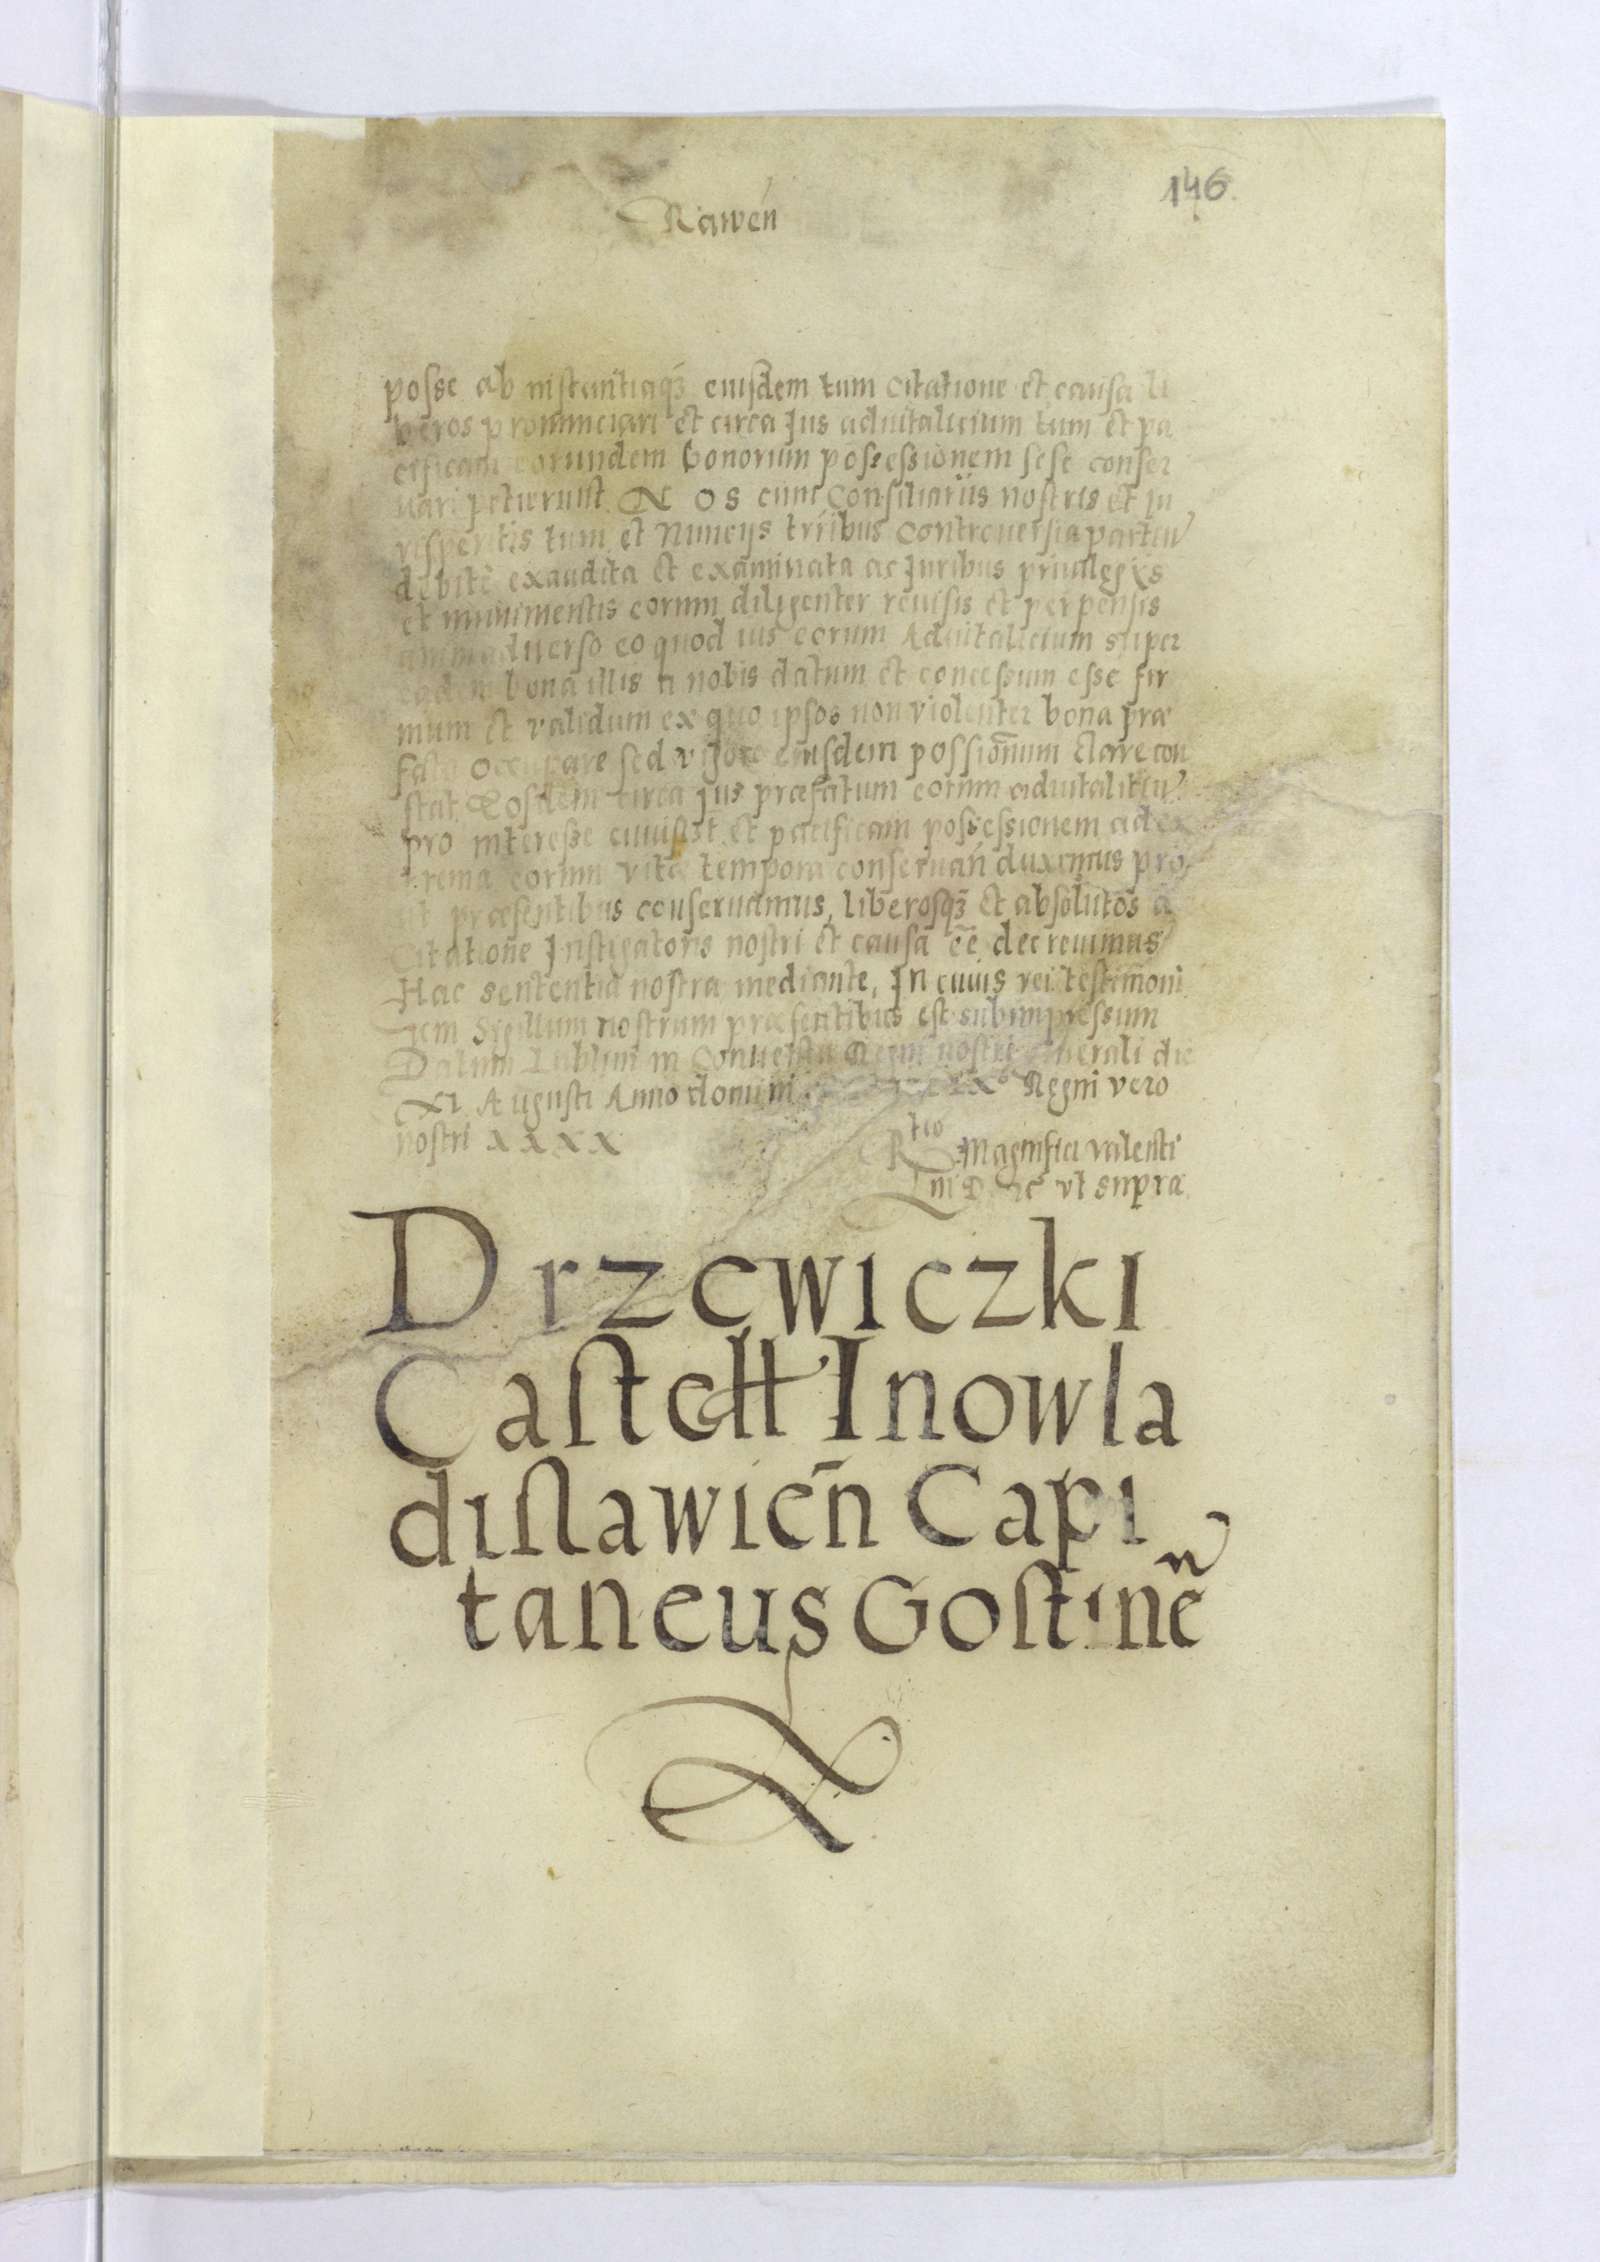 146.
Rawen̄
posse ab instantiaqȝ eiusdem tum Citatione et causa li
beros pronunciari et circa Jus aduitalicium tum et pa
cificam eorundem bonorum possessionem sese conser
uari petierunt. NOS cum Consiliariis nostris et Ju
risperitis tum et Nuncijs trr̄ibus Controuersia partiū
debite exaudita et examinata ac Juribus priuilegijs
et munimentis eorum diligenter reuisis et perpensis
animaduerso eo quod ius eorum Aduitalicium super
eadem bona illis a nobis datum et concessum esse fir
mum et validum ex quo ipsos non violenter bona præ
fata occupare sed vigore eiusdem possion̄um clare con
stat Eosdem circa Jus præfatum eorum aduitalitiū
pro interesse et pacificam possessionem ad ex
trema eorum vitæ tempora conseruan̄ duximus pro
ut præsentibus conseruamus, liberosqȝ et absolutos a
Citatione Instigatoris nostri et causa eē decreuimus
Hac sententia nostra mediante, In cuius rei testimoni
um Sigillum nostrum præsentibus est subimpressum
Datum Lublini in Conuentu Regni nostri generali die
XI Augusti Anno domini Regni vero
nostri XXXX
Rtio Magnifici valenti
ni D ut supra
Drzewiczki
Castell Inowla
dislawien̄ Capi
taneus Gostinen̄